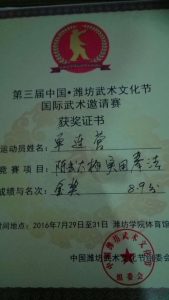 第三届中国•潍坊武术文化节
国际武术邀请赛
获奖证书
运动员姓名: 单连营
竞赛项目: 陈式太极实用拳法
成绩与名次: 金奖 8.9分
时间地点: 2016年7月29日至31日 潍坊学院体育馆
中国潍坊武术文化节组委会